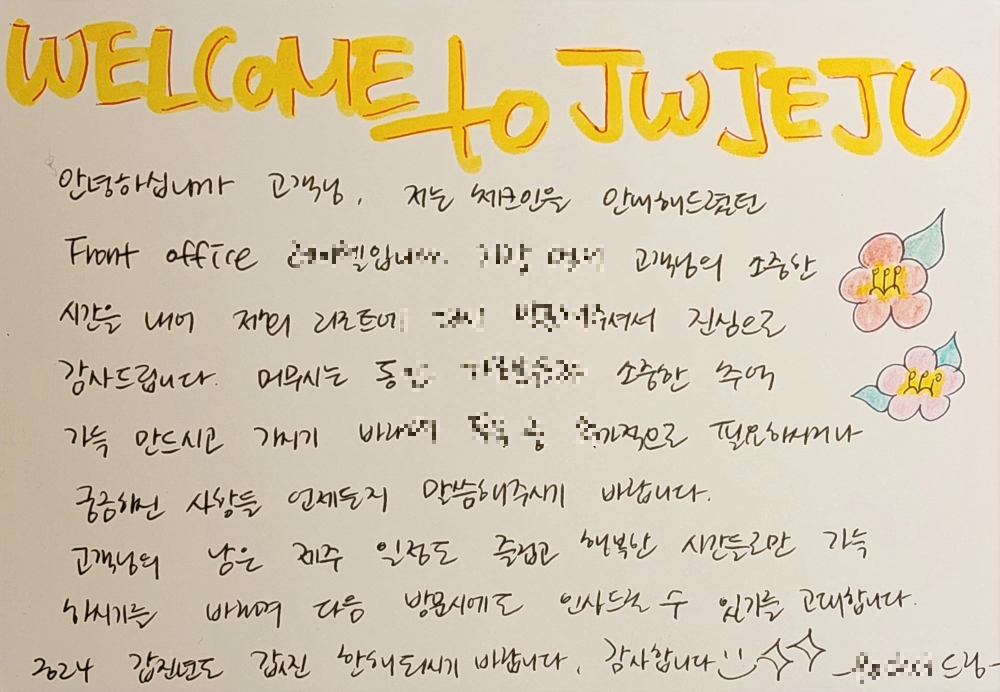 WELCOME to JW JEJU
안녕하십니까 고객님, 저는 체크인을 안내해드렸던
Front office 고객님의 소중한
시간을 내어 저희 리조트에 진심으로
감사드립니다. 머무시는 소중한 추억
가득 만드시고 가시기 필요하시거나
궁금하신 사항들 언제든지 말씀해주시기 바랍니다.
고객님의 남은 제주 일정도 즐겁고 행복한 시간들로만 가득
하시기를 바라며 다음 방문시에도 인사드릴 수 있기를 고대합니다.
2024 갑진년도 값진 한해되시기 바랍니다. 감사합니다 드림-